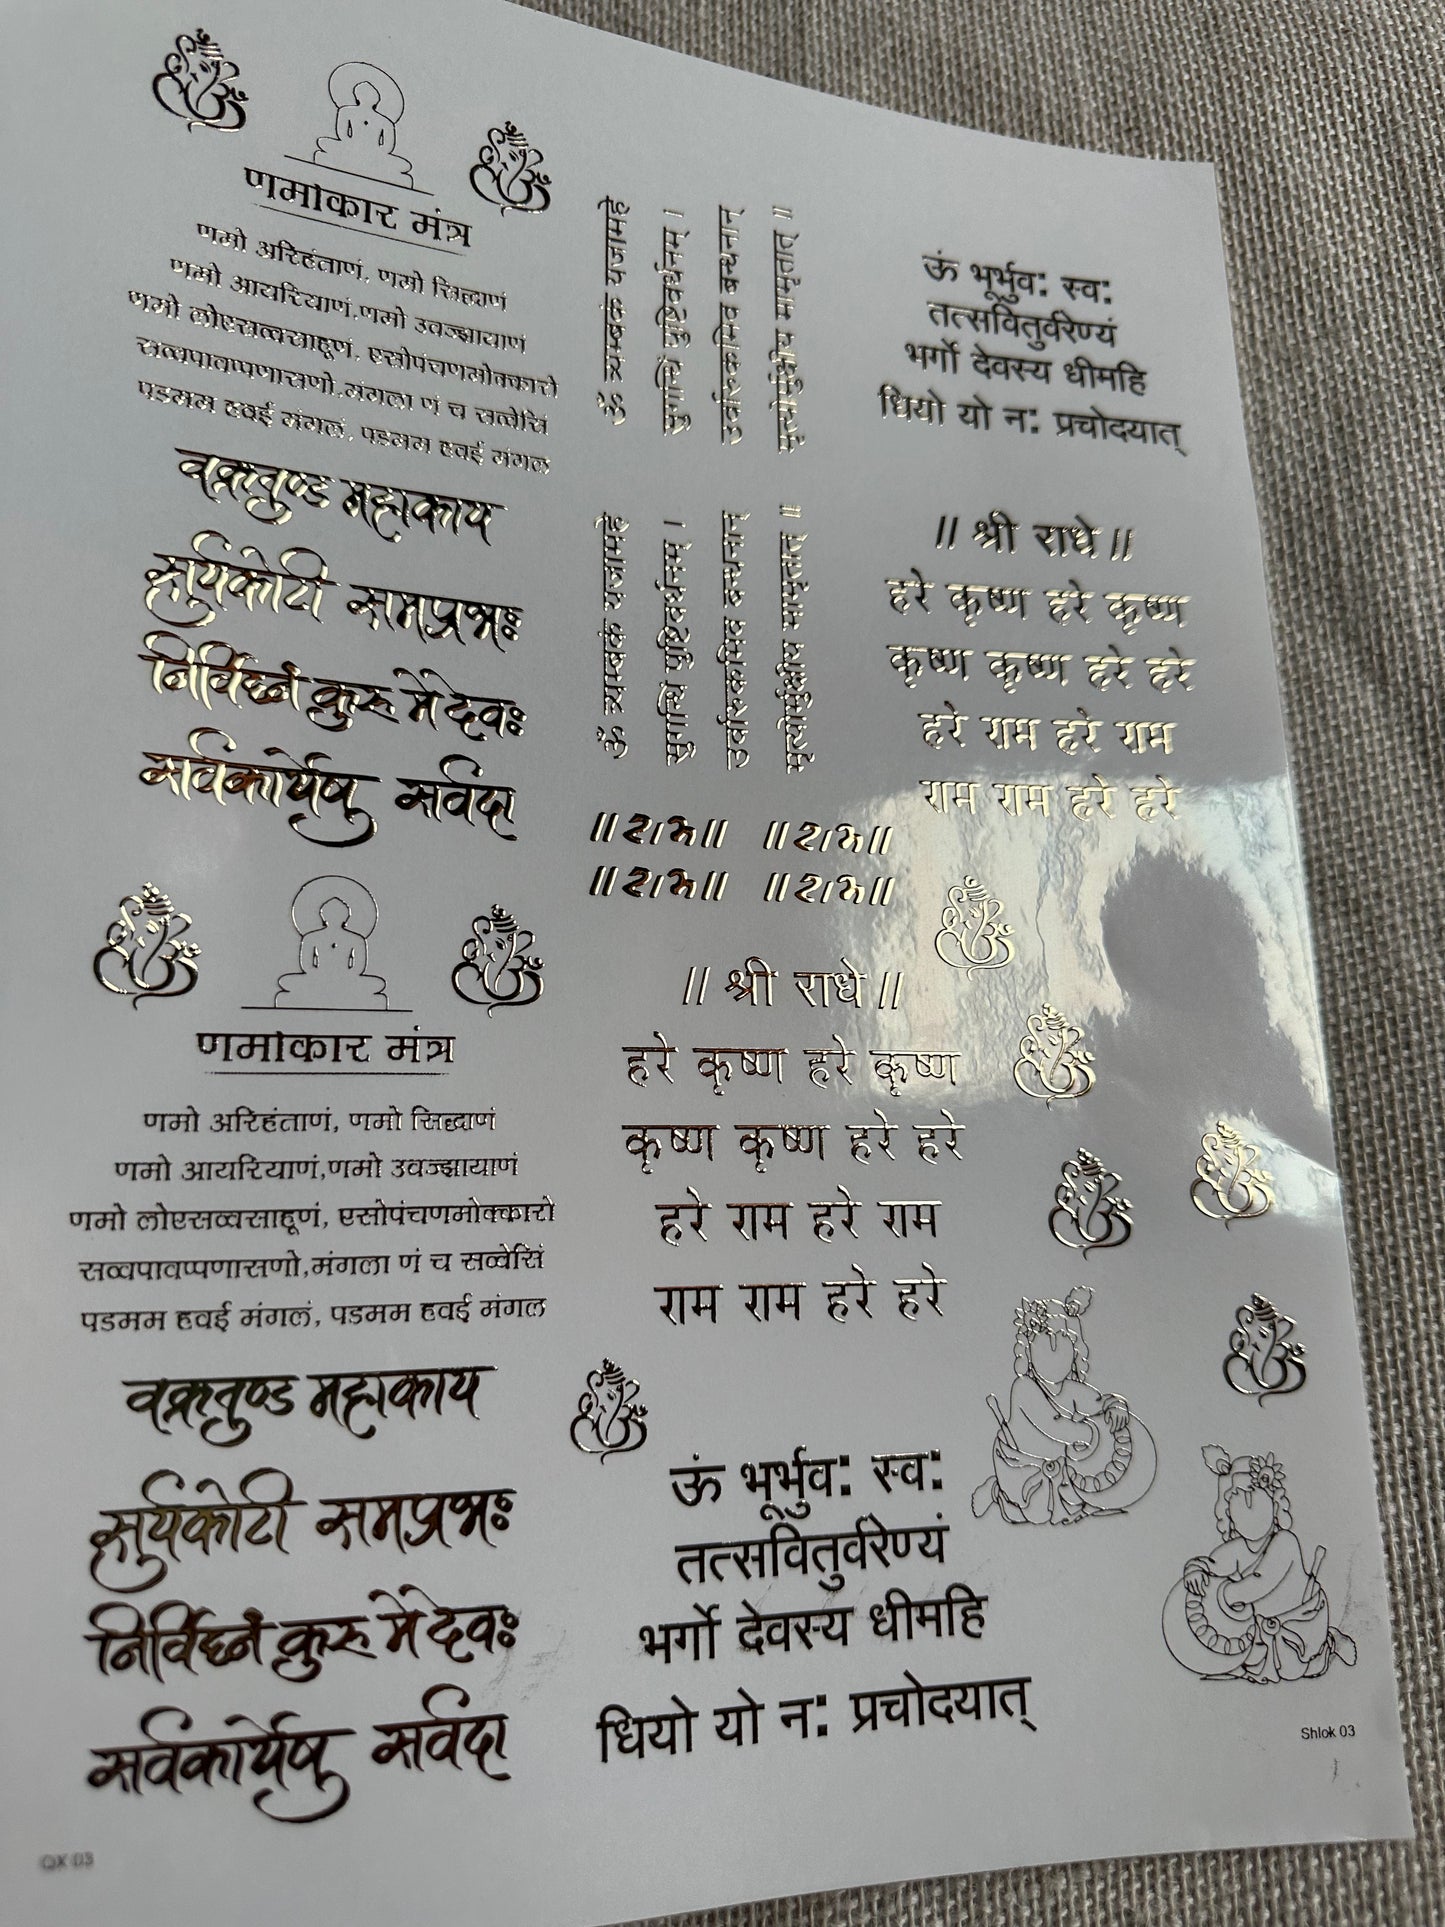 णमोकार मंत्र
णमो अरिहंताणं, णमो सिद्धाणं
णमो आयरियाणं,णमो उवज्झायाणं
णमो लोएसव्वसाहूणं, एसोपंचणमोक्कारो
सव्वपावप्पणासणो,मंगला णं च सव्वेसिं
पडमम हवई मंगलं, पडमम हवई मंगल
वक्रतुण्ड महाकाय
सुर्यकोटी समप्रभः
निर्विघ्नं कुरु मे देवः
सर्वकार्येषु सर्वदा
ॐ त्र्यम्बकं यजामहे
सुगन्धिं पुष्टिवर्धनम् ।
उर्वारुकमिव बन्धनान्
मृत्योर्मुक्षीय मामृतात् ॥
ऊं भूर्भुव: स्व:
तत्सवितुर्वरेण्यं
भर्गो देवस्य धीमहि
धियो यो न: प्रचोदयात्
ॐ त्र्यम्बकं यजामहे
सुगन्धिं पुष्टिवर्धनम् ।
उर्वारुकमिव बन्धनान्
मृत्योर्मुक्षीय मामृतात् ॥
॥ श्री राधे ॥
हरे कृष्ण हरे कृष्ण
कृष्ण कृष्ण हरे हरे
हरे राम हरे राम
राम राम हरे हरे
णमोकार मंत्र
णमो अरिहंताणं, णमो सिद्धाणं
णमो आयरियाणं,णमो उवज्झायाणं
णमो लोएसव्वसाहूणं, एसोपंचणमोक्कारो
सव्वपावप्पणासणो,मंगला णं च सव्वेसिं
पडमम हवई मंगलं, पडमम हवई मंगल
वक्रतुण्ड महाकाय
सुर्यकोटी समप्रभः
निर्विघ्नं कुरु मे देवः
सर्वकार्येषु सर्वदा
॥ श्री राधे ॥
हरे कृष्ण हरे कृष्ण
कृष्ण कृष्ण हरे हरे
हरे राम हरे राम
राम राम हरे हरे
ऊं भूर्भुव: स्व:
तत्सवितुर्वरेण्यं
भर्गो देवस्य धीमहि
धियो यो न: प्रचोदयात्
Shlok 03
QX 03